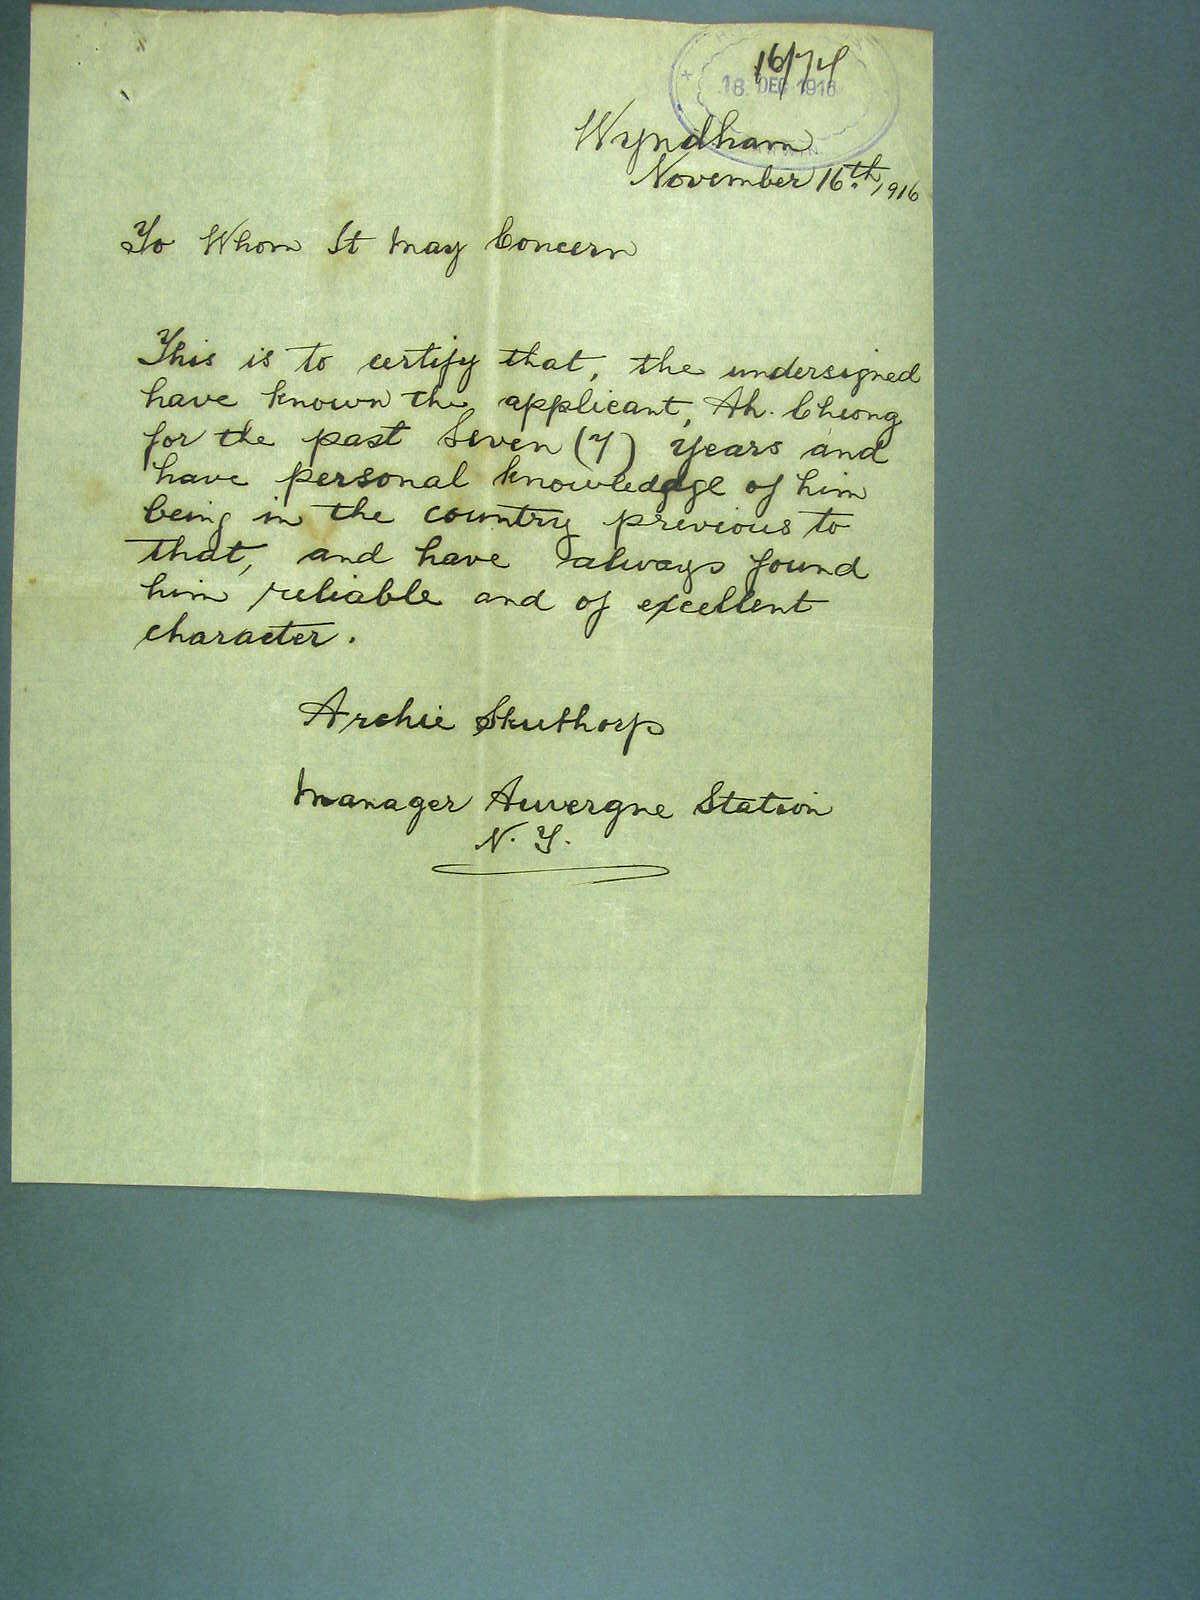 16/74
18 DEC 1916
Wyndham
November 16th, 1916
To Whom It May Concern
This is to certify that, the undersigned
have known the applicant, Ah. Cheong
for the past Seven (7) years and
have personal knowledge of him
being in the country previous to
that, and have always found
him reliable and of excellent
character.
Archie Skuthorp
Manager Auvergne Station
N. T.